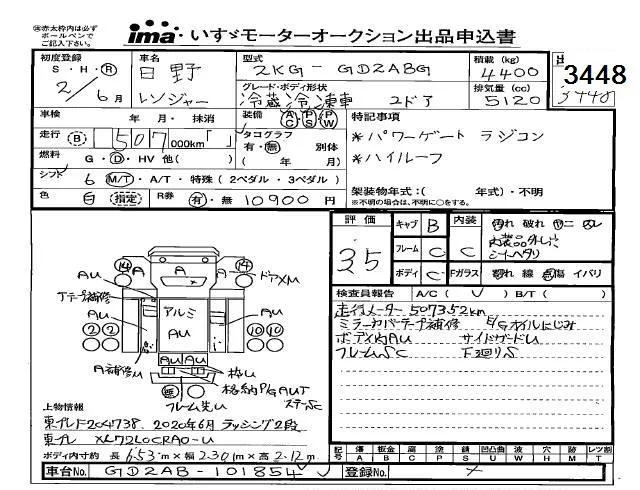 ㊟赤太枠内は必ず
ボールペンで
ご記入下さい。
ima・いすゞモーターオークション出品申込書
初度登録
S・H・Ⓡ
2/6月
車名
日野
レンジャー
型式
2KG-GD2ABG
グレード・ボディ形状
冷蔵冷凍車 2ドア
積載(kg)
4400
排気量(cc)
5120
3448
3448
車検 年 月・抹消
装備 AC PS PW
特記事項
*パワーゲート ラジコン
*ハイルーフ
走行 Ⓑ 507,000km「 」
タコグラフ
有・無 別体
( 年 月)
燃料 G・Ⓓ・HV 他( )
シフト 6 M/T・A/T・特殊(2ペダル・3ペダル)
架装物年式:( 年式)・不明
※不明の場合は、不明に○をする。
色 白 (指定) R券 有・無 10900円
評価
3.5
キャブ B
フレーム C
ボディ C
内装 C
Fガラス
汚れ 破れ ヤニ スレ
内装品外し穴
シートヘタリ
割れ 線 点傷 イバリ
検査員報告 A/C( ✓ ) B/T( )
走行メーター507352km
ミラーカバーテープ補修 E/Gオイルにじみ
ボディ内AU サイドガードU
フレームSC 下回りS
14 A A A 14
AU ドアMU
Tテープ補修 アルミ AU
AU AU
2 2 10 10
AU AU
A補修U 枠U
格納P/G AUT
フレーム先U ステーSC
上物情報
東プレF204738、2020年6月 ラッシング2段
東プレ XL72L0CRA0-U
ボディ内寸 約 長さ 6.53m×幅 2.30m×高さ 2.12m
記号 傷 A 板金 B 腐 C 塗 P 錆 S 凹凸曲 U 波 W 穴 H 跡 M レツ割 T
車台No. GD2AB-101854
登録No.